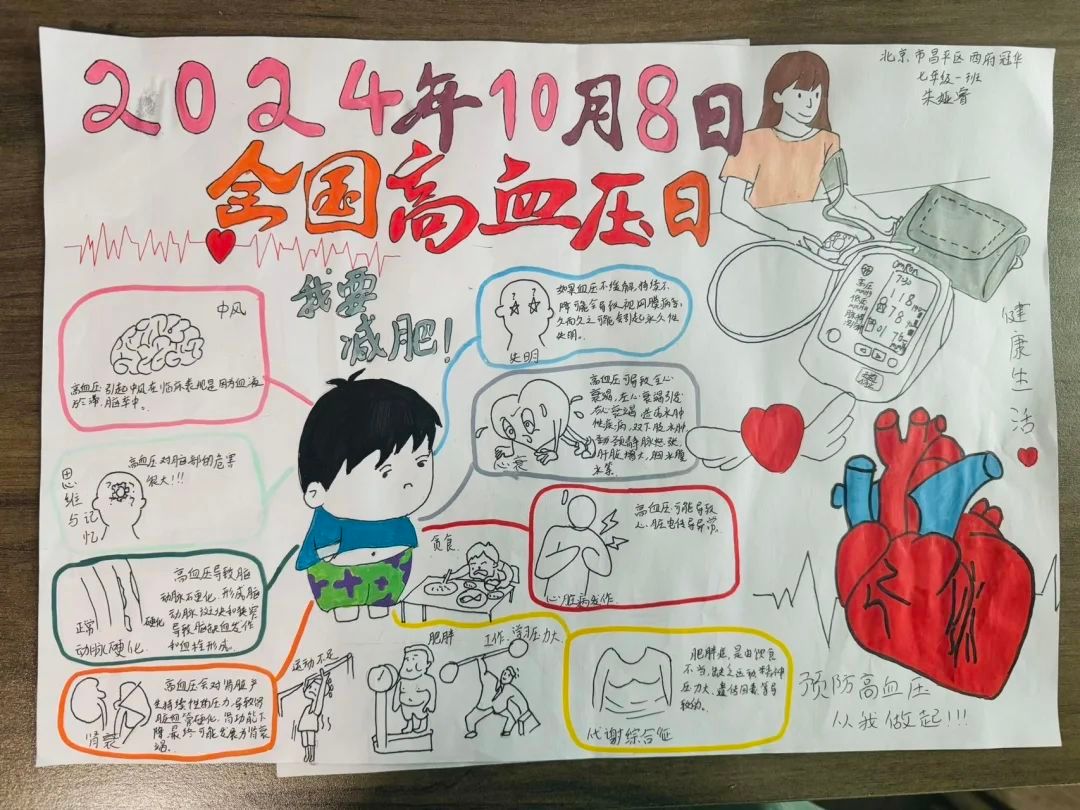 2024年10月8日
全国高血压日
北京市昌平区西府冠华
七年级一班
我要
减肥！
中风
高血压引起中风在临床表现是因为血液
瘀滞，脑卒中。
如果血压不缓解，持续不
降可能会导致视网膜病变，
久而久之可能会引起永久性
失明。
失明
思维与记忆
高血压对脑部的危害
很大！！！
高血压可导致全心
衰竭，左心衰竭引起
右心衰竭
肝脏增大，胸水腹
水等。
心衰
正常
硬化
动脉硬化
高血压导致脑
动脉硬化，形成脑
动脉斑块和狭窄
导致脑缺血发作
和血栓形成。
高血压可能导致
心脏电传导异常。
心脏病发作
贪食
肾衰
高血压会对肾脏产
生持续性的压力，导致肾
脏血管硬化，肾功能下
降，最终可能发展为肾衰
竭。
运动不足
肥胖
工作，学习压力大
肥胖症，是由饮食
不当，缺乏运动，精神
压力大，遗传因素等导
致的。
代谢综合征
omron
7:30
高压
mmHg
118
低压
mmHg
78
脉搏
76
健康生活
预防高血压
从我做起！！！